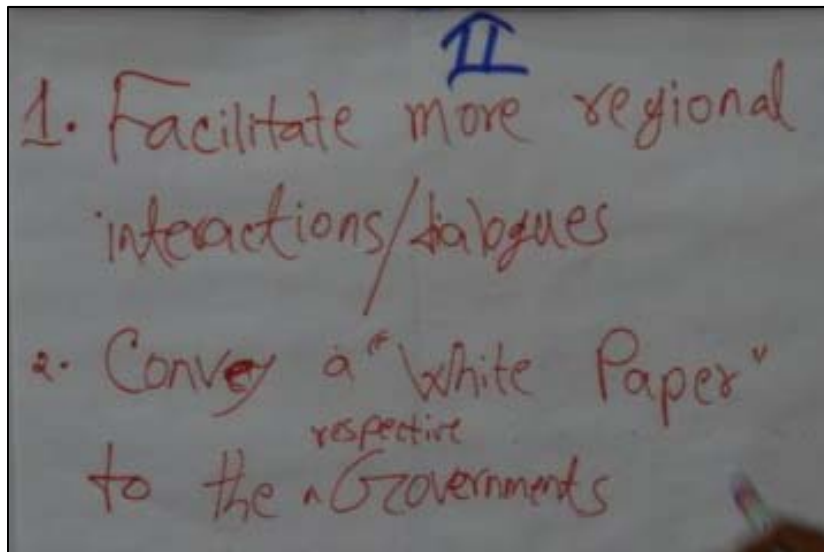 II
1. Facilitate more regional
interactions/dialogues
2. Convey a "White Paper"
to the ^respective Governments